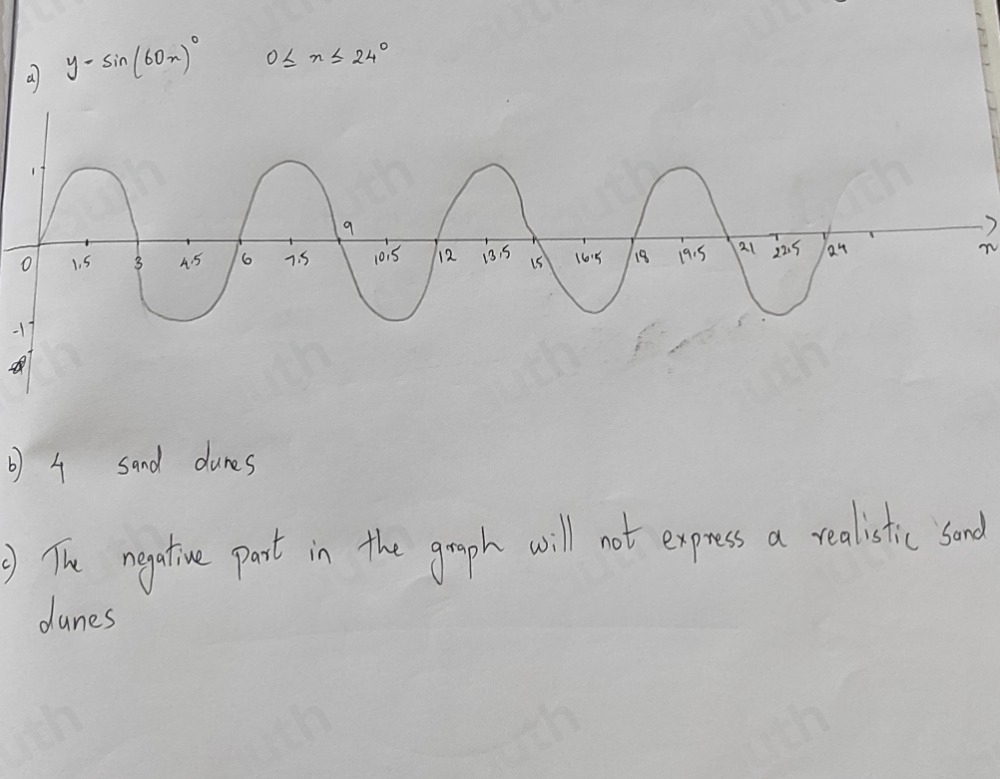 a) y = sin(60x)° 0 ≤ x ≤ 24°
1
9
0 1.5 3 4.5 6 7.5 10.5 12 13.5 15 16.5 18 19.5 21 22.5 24 x
-1
b) 4 sand dunes
c) The negative part in the graph will not express a realistic sand
dunes